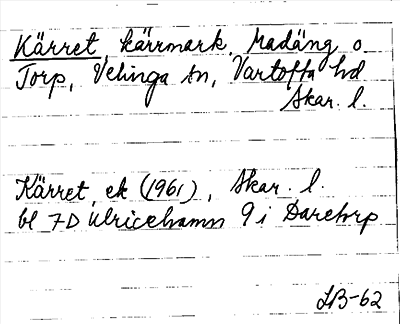 Kärret, kärrmark, Madäng o
Torp, Velinga sn, Vartofta hd
Skar. l.
Kärret, ek (1961), Skar. l.
bl 7D Ulricehamn 9i Daretorp
LB-62